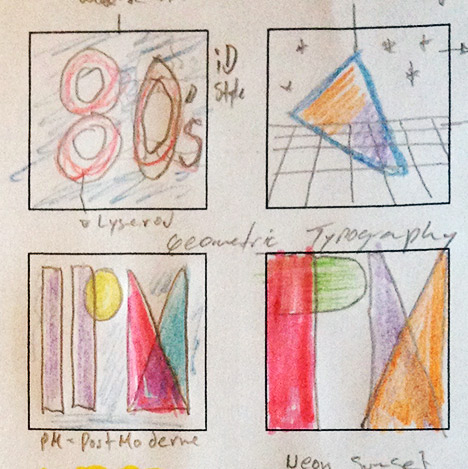 80's
iD
Style
Lyserød
Geometric Typography
PM
PM
PM = PostModerne
Neon Sunset